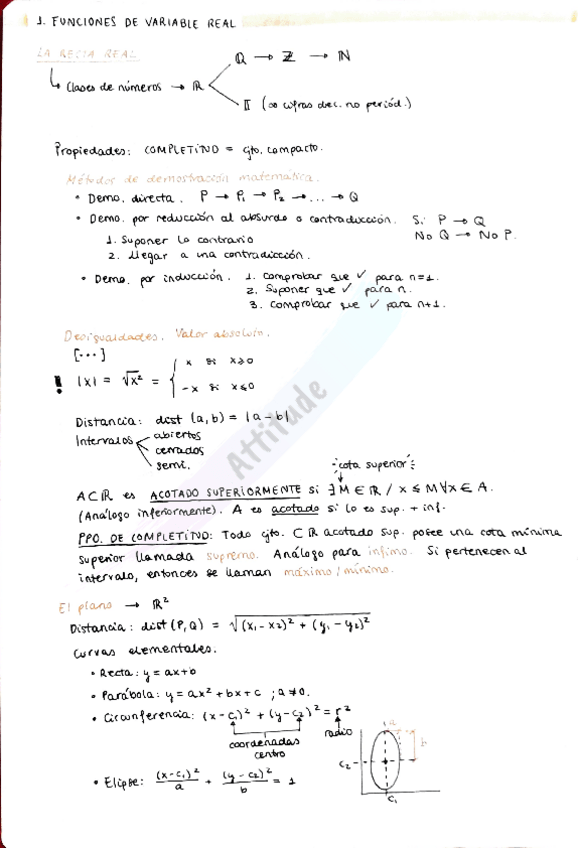 1. FUNCIONES DE VARIABLE REAL
LA RECTA REAL
Q → Z → N
↳ Clases de números → R
I (∞ cifras dec. no periód.)
Propiedades: COMPLETITUD = cjto. compacto.
Métodos de demostración matemática.
• Demo. directa. P → P₁ → P₂ → ... → Q
• Demo. por reducción al absurdo o contradicción. Si P → Q
No Q → No P.
1. Suponer lo contrario
2. Llegar a una contradicción.
• Demo. por inducción. 1. Comprobar que ✓ para n=1.
2. Suponer que ✓ para n.
3. Comprobar que ✓ para n+1.
Desigualdades. Valor absoluto.
[...]
! |x| = √x² = { x si x≥0
-x si x≤0
Distancia: dist (a,b) = |a-b|
Intervalos
abiertos
cerrados
semi.
cota superior
A⊂R es ACOTADO SUPERIORMENTE si ∃M∈R / x≤M ∀x∈A.
(Análogo inferiormente). A es acotado si lo es sup. + inf.
PPO. DE COMPLETITUD: Todo cjto. ⊂R acotado sup. posee una cota mínima
superior llamada supremo. Análogo para ínfimo. Si pertenecen al
intervalo, entonces se llaman máximo/mínimo.
El plano → R²
Distancia: dist(P,Q) = √(x₁-x₂)² + (y₁-y₂)²
Curvas elementales.
• Recta: y = ax+b
• Parábola: y = ax² + bx + c ; a≠0.
• Circunferencia: (x-c₁)² + (y-c₂)² = r²
coordenadas
centro
radio
• Elipse: (x-c₁)²/a + (y-c₂)²/b = 1
a
b
c₂
c₁
Attitude